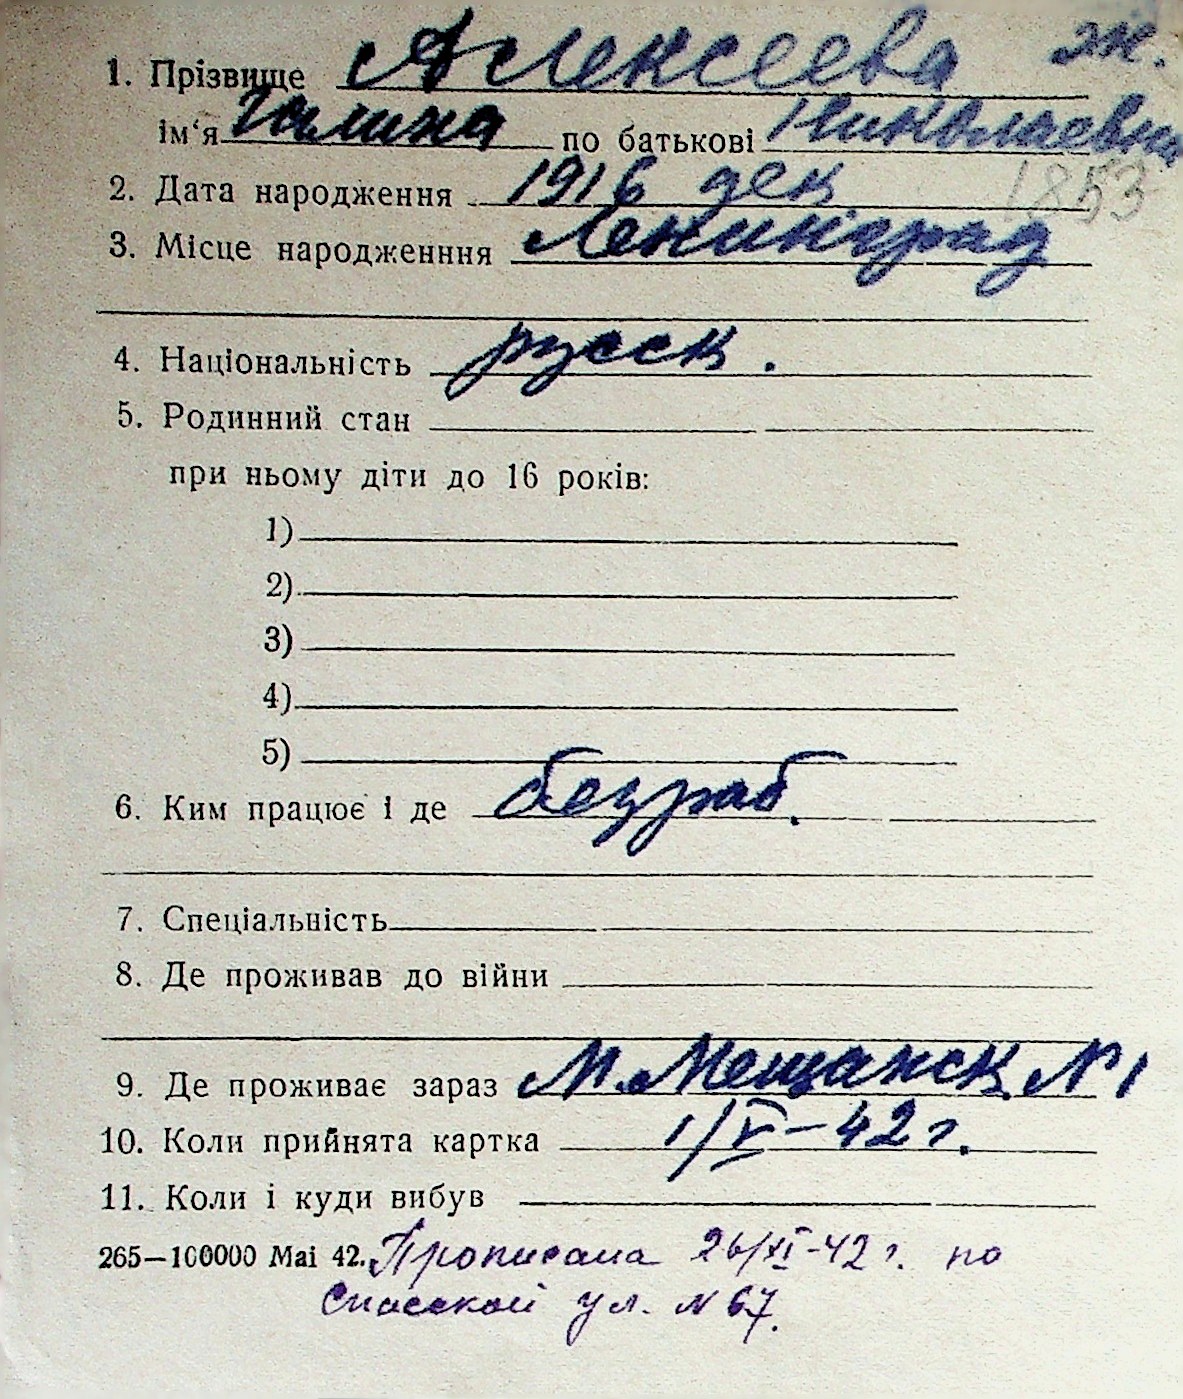 1. Прізвище Алексеева ж.
ім‘я Галина по батькові Николаевна
2. Дата народження 1916 дек 1853
3. Місце народженння Ленинград
4. Національність русск.
5. Родинний стан
при ньому діти до 16 років:
1)
2)
3)
4)
5)
6. Ким працює і де безраб.
7. Спеціальність
8. Де проживав до війни
9. Де проживає зараз М. Мещанск. № 1
10. Коли прийнята картка 1/V-42 г.
11. Коли і куди вибув
265—100000 Mai 42. Прописана 26/XI-42 г. по
Спасской ул. № 67.